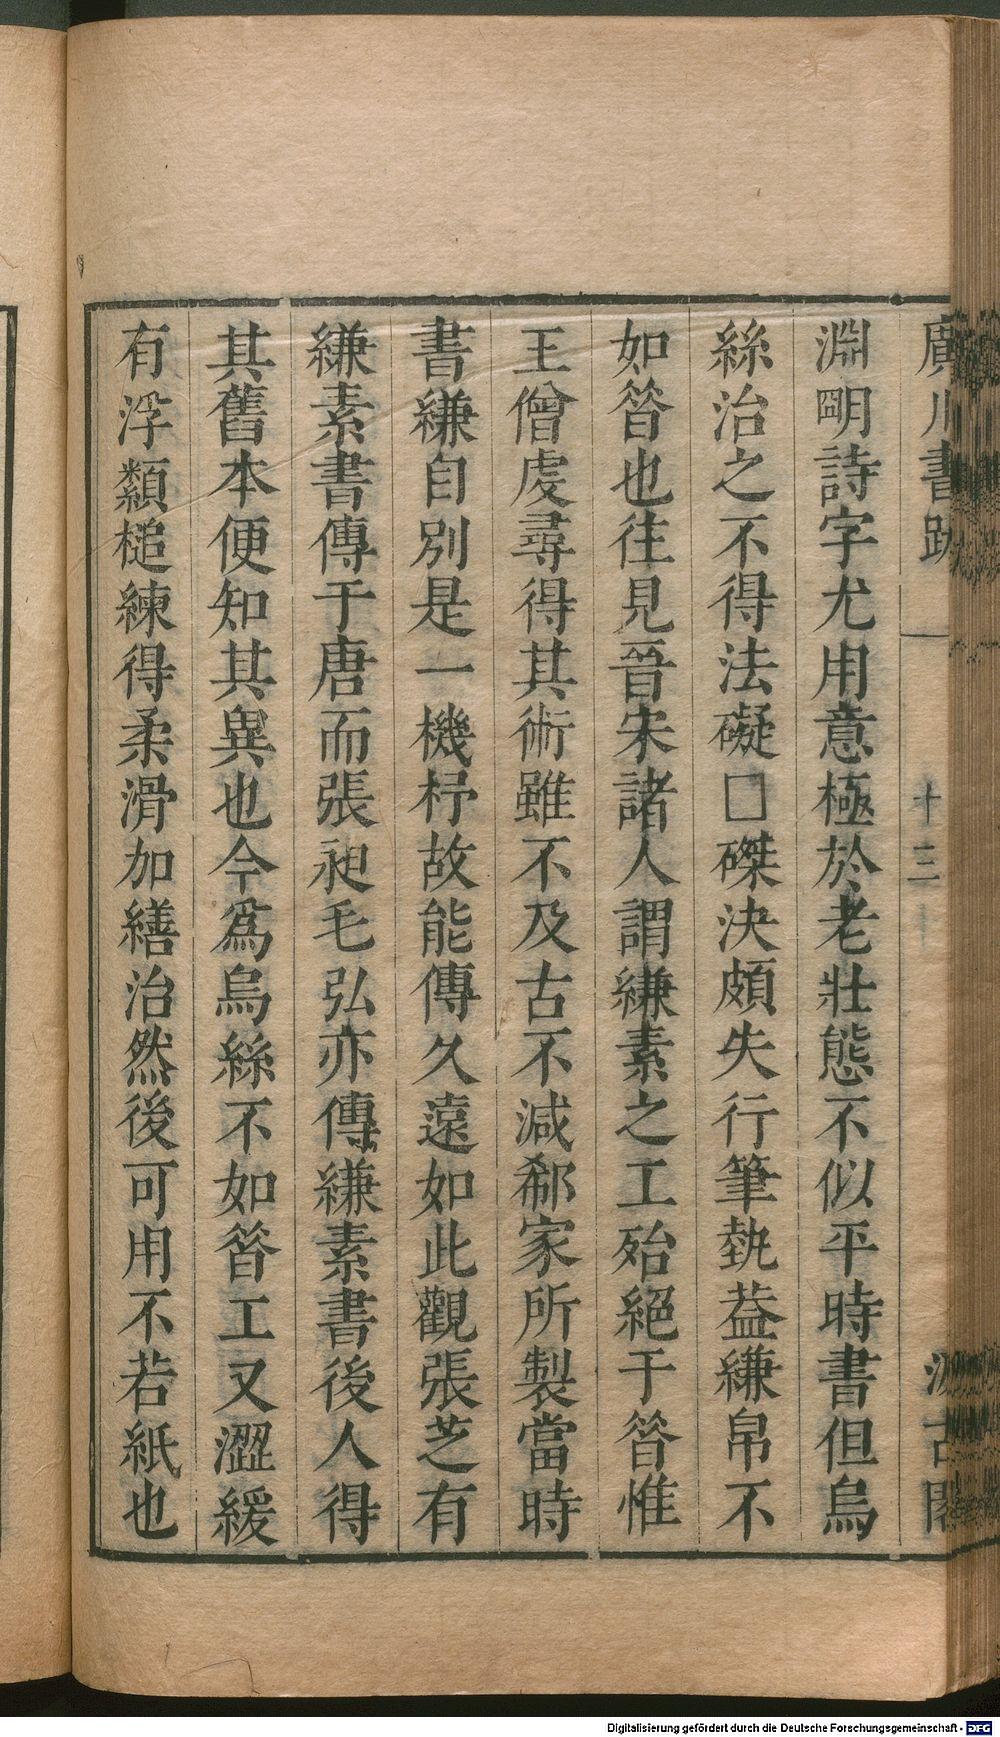 廣川書跋 十三 汲古閣
淵明詩字尤用意極於老壯態不似平時書但烏
絲治之不得法礙□磔決頗失行筆埶益縑帛不
如昝也往見晉宋諸人謂縑素之工殆絕于昝惟
王僧虔尋得其術雖不及古不減郗家所製當時
書縑自別是一機杼故能傳久遠如此觀張芝有
縑素書傳于唐而張昶毛弘亦傳縑素書後人得
其舊本便知其異也今爲烏絲不如昝工又澀緩
有浮纇槌練得柔滑加繕治然後可用不若紙也
Digitalisierung gefördert durch die Deutsche Forschungsgemeinschaft - DFG